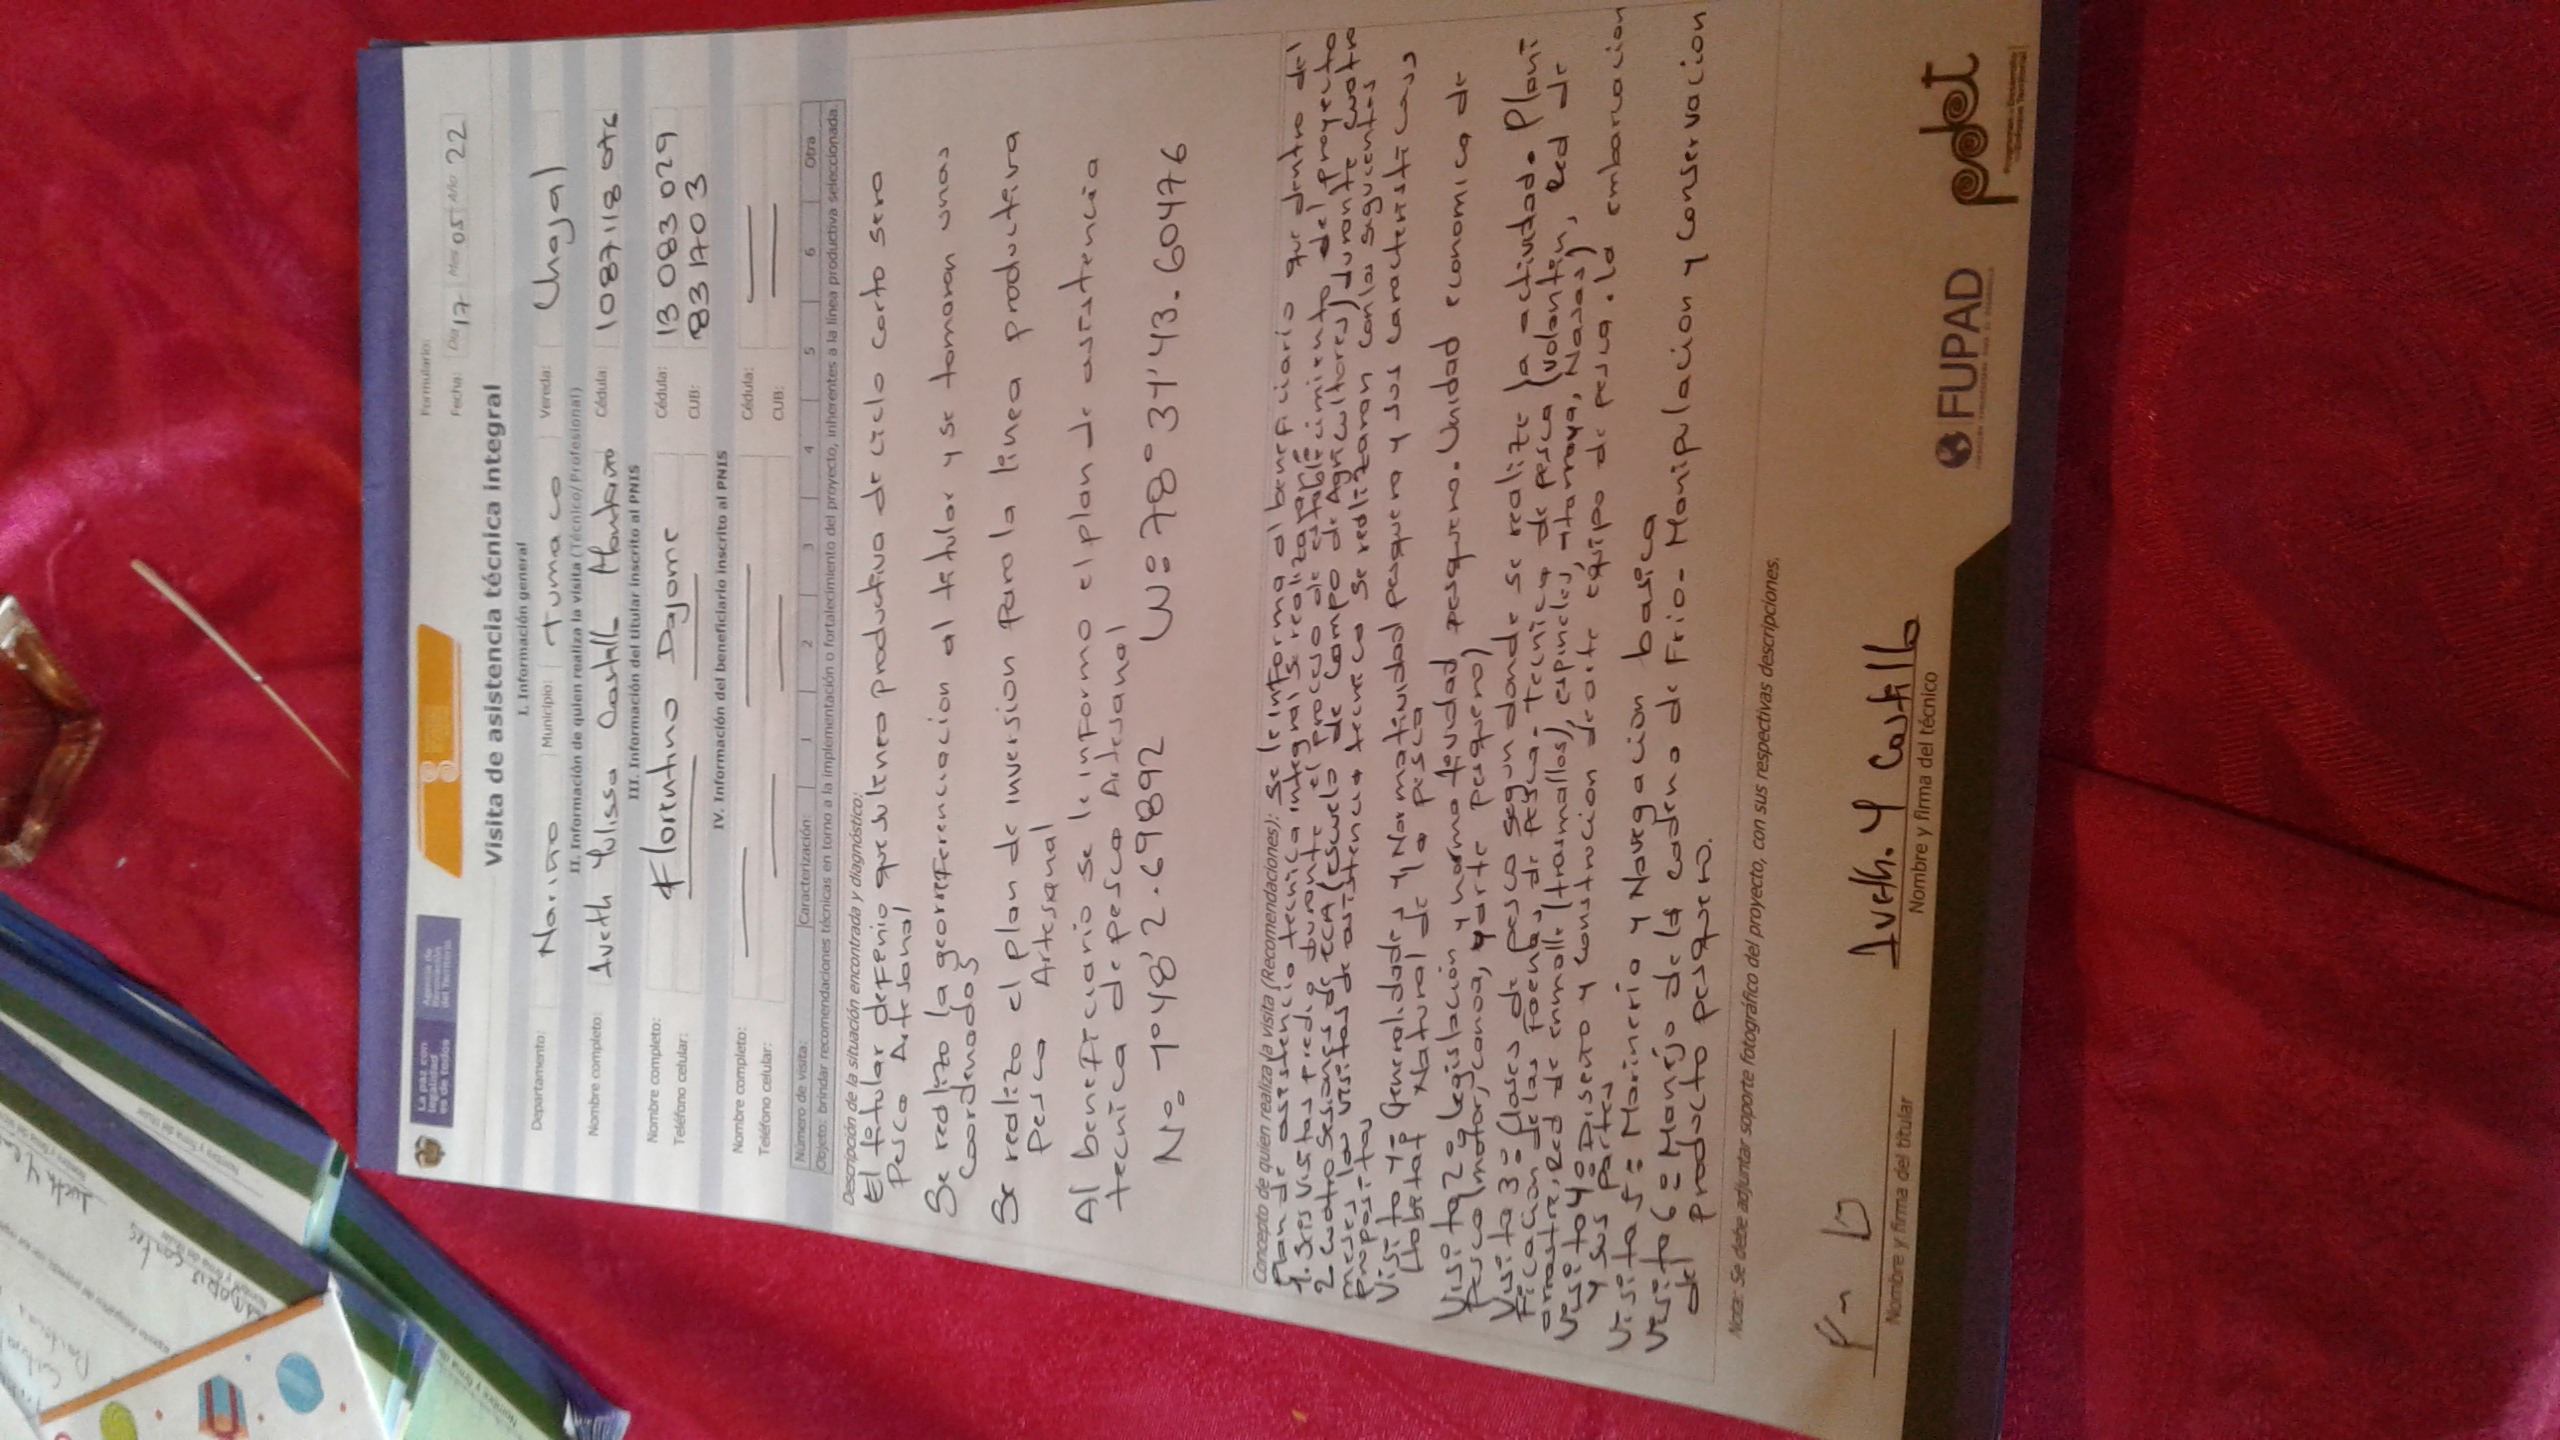 La paz con
legalidad
es de todos
Agencia de
Renovación
del Territorio
Formulario:
Fecha: Día 17 Mes 05 Año 22
Visita de asistencia técnica integral
I. Información general
Departamento: Nariño Municipio: Tumaco Vereda: Chajal
II. Información de quien realiza la visita (Técnico/Profesional)
Nombre completo: Iveth Yulissa Castillo Cédula:
III. Información del titular inscrito al PNIS
Nombre completo: Florentino Dajome Cédula: 13 083 029
Teléfono celular: CUB: 831703
IV. Información del beneficiario inscrito al PNIS
Nombre completo: Cédula:
Teléfono celular: CUB:
Número de visita: Caracterización: 1 2 3 4 5 6 Otra
Objeto: brindar recomendaciones técnicas en torno a la implementación o fortalecimiento del proyecto, inherentes a la línea productiva seleccionada.
Descripción de la situación encontrada y diagnóstico:
El titular defenio que su linea productiva de ciclo corto sera
Pesca Artesanal
Se realizo la georreferenciacion al titular y se tomaron unas
Coordenadas
Se realizo el plan de inversion para la linea productiva
Pesca Artesanal
Al beneficiario se le informo el plan de asistencia
tecnica de pesca Artesanal
N: 1°48'2.69892 W: 78°31'43.60476
Concepto de quien realiza la visita (Recomendaciones): Se le informa al beneficiario que dentro del
Plan de asistencia tecnica integral se realizaran
1. Seis visitas predio durante el proceso de establecimiento del proyecto
2 cuatro Sesiones de ECA (escuela de campo de Agricultores) durante cuatro
meses las visitas de asistencia tecnica se realizaran con los seguientes
propositos
Visita 1: Generalidades y Normatividad pesquera y sus caracteristicas
Habitat Natural de la pesca
Visita 2: legislacion y normatividad pesquero. Unidad economica de
Pesca (motor, canoa, y arte pesquero)
Visita 3: Clases de pesca segun donde se realize la actividad. Plani
ficacion de las faenas de pesca - tecnica de pesca (volantin, Red de
arrastre, Red de enmalle (trasmallos), espineles, atarraya, Nasas)
Visita 4: Diseño y construcion de arte equipo de pesca. la embarcacion
y sus partes
Visita 5: Marineria y Navegacion basica
Visita 6: Manejo de la cadena de Frio. Manipulacion y Conservacion
del Producto pesquero.
Nota: Se debe adjuntar soporte fotográfico del proyecto, con sus respectivas descripciones.
Iveth. Y Castillo
Nombre y firma del titular Nombre y firma del técnico
FUPAD
pdet